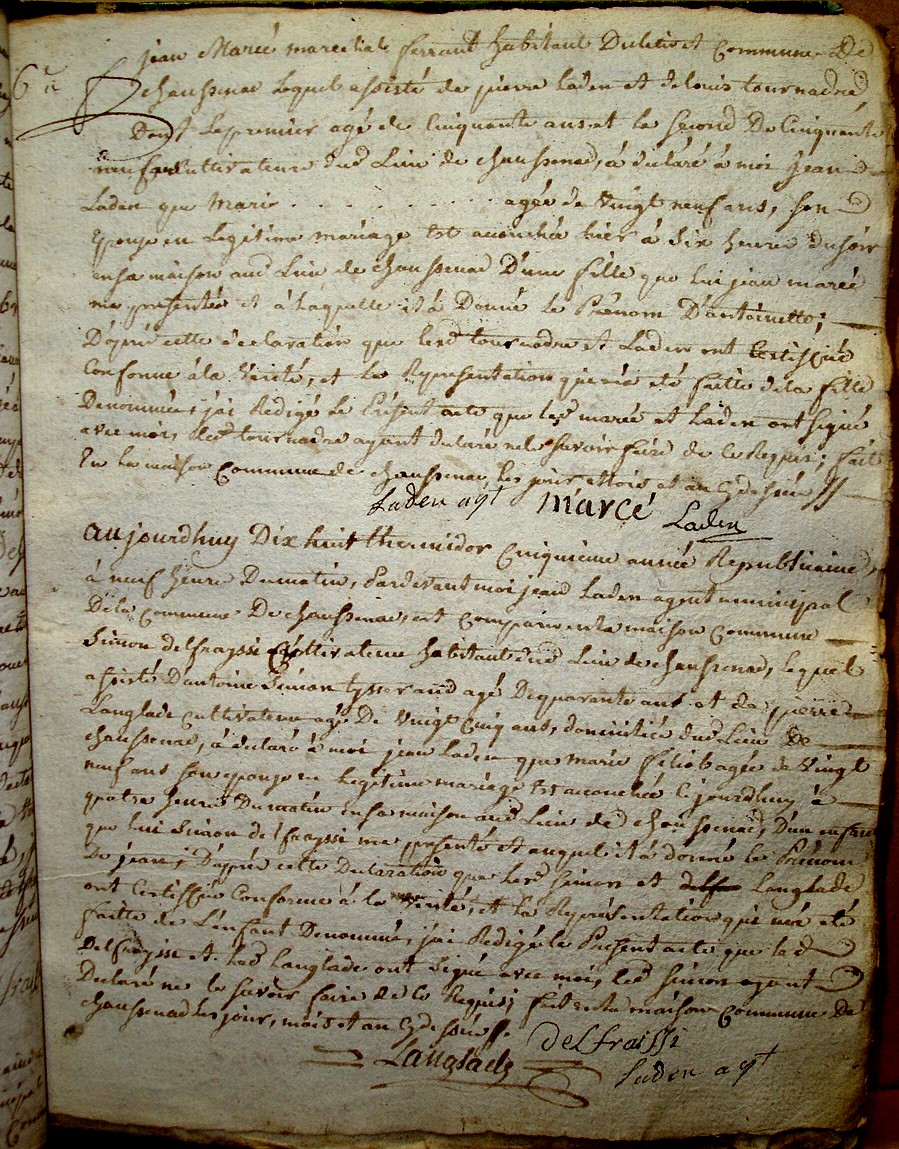 jean Marcé marechal ferrant habitant du lieu et Commune De
chaussenac lequel assisté de pierre laden et de louis tournadre
Dont le premier agé de Cinquante ans et le second De Cinquante
neuf ans Cultivateurs dud lieu de chaussenac, à déclaré à moi jean
Laden que Marie . . . . . . . . . agée de vingt neuf ans, son
Epouse en legitime mariage est acouchée hier à six heures du soir
en sa maison aud lieu de chaussenac D'une fille que lui jean marcé
me presentée et à laquelle il à Donné le Prénom D'antoinette;
D'après cette declaration que lesd tournadre et Laden ont Certiffié
Conforme à la vérité, et la Representation qui m'a été faitte de la fille
Denommée, j'ai Redigé le Présent acte que lesd marcé et Laden ont signé
avec moi, led tournadre ayant declaré ne le savoir faire de ce Requis; fait
En la maison Commune de chaussenac, les jour et mois et an cydessus
Laden agt marcé Laden
aujourdhuy Dix huit thermidor Cinquieme année Republicaine,
à neuf heures Dumatin, Pardevant moi jean Laden agent municipal
Dela Commune De chaussenac, est Comparu en la maison Commune
Simon delfraysse Cultivateur habitant dud lieu de chaussenac, lequel
assisté D'antoine Simon tysserand agé De quarante ans et de pierre
Langlade cultivateur agé De vingt cinq ans, domicilié dud lieu De
chaussenac, à déclaré à moi jean Laden que marie filiol agée de vingt
neuf ans son epouse en legitime mariage est acouchée cejourdhuy à
quatre heures Dumatin en sa maison aud lieu de chaussenac, D'un enfant
que lui Simon delfraysse me presenté et auquel il à donné le Prénom
De jean; D'après cette Declaration que lesd Simon et Langlade
ont Certiffié Conforme à la verité, et la Représentation qui m'a eté
faitte de L'enfant Denommé, j'ai Redigé le Présent acte que led
Delfraysse et led Langlade ont signé avec moi, led Simon ayant
Declaré ne le savoir faire de ce Requis; fait en la maison Commune De
chaussenac les jour, mois et an cydessus.
Langlade delfraissi
Laden agt